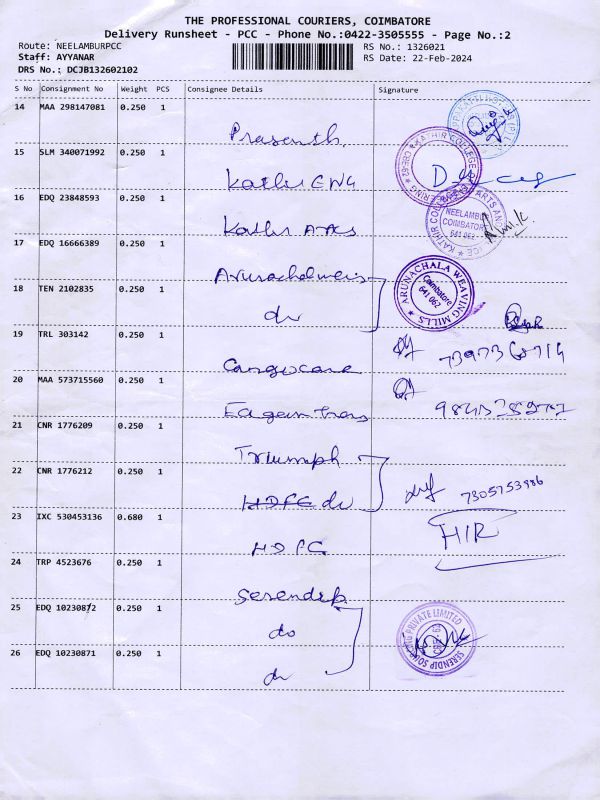 THE PROFESSIONAL COURIERS, COIMBATORE
Delivery Runsheet - PCC - Phone No.:0422-3505555 - Page No.:2
Route: NEELAMBURPCC
RS No.: 1326021
Staff: AYYANAR
RS Date: 22-Feb-2024
DRS No.: DCJB132602102
S No Consignment No Weight PCS Consignee Details Signature
14 MAA 298147081 0.250 1
Prasanth.
15 SLM 340071992 0.250 1
KATHIR COLLEGE
Kathir ENG
16 EDQ 23848593 0.250 1
NEELAMBUR
COIMBATORE
641 062
Kathir Arts
17 EDQ 16666389 0.250 1
18 TEN 2102835 0.250 1
ARUNACHALA WEAVING MILLS
Coimbatore
641 062
do
19 TRL 303142 0.250 1
Cargocare
20 MAA 573715560 0.250 1
21 CNR 1776209 0.250 1
Triumph
22 CNR 1776212 0.250 1
HDFC do
7305753986
23 IXC 530453136 0.680 1
HDFC
24 TRP 4523676 0.250 1
Serendib
25 EDQ 10230872 0.250 1
do
SERENDIP SOURCING PRIVATE LIMITED
26 EDQ 10230871 0.250 1
do